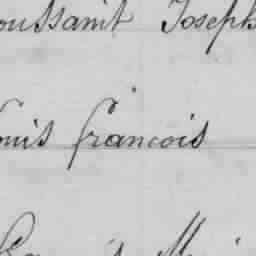 oussaint Joseph
ouis francois